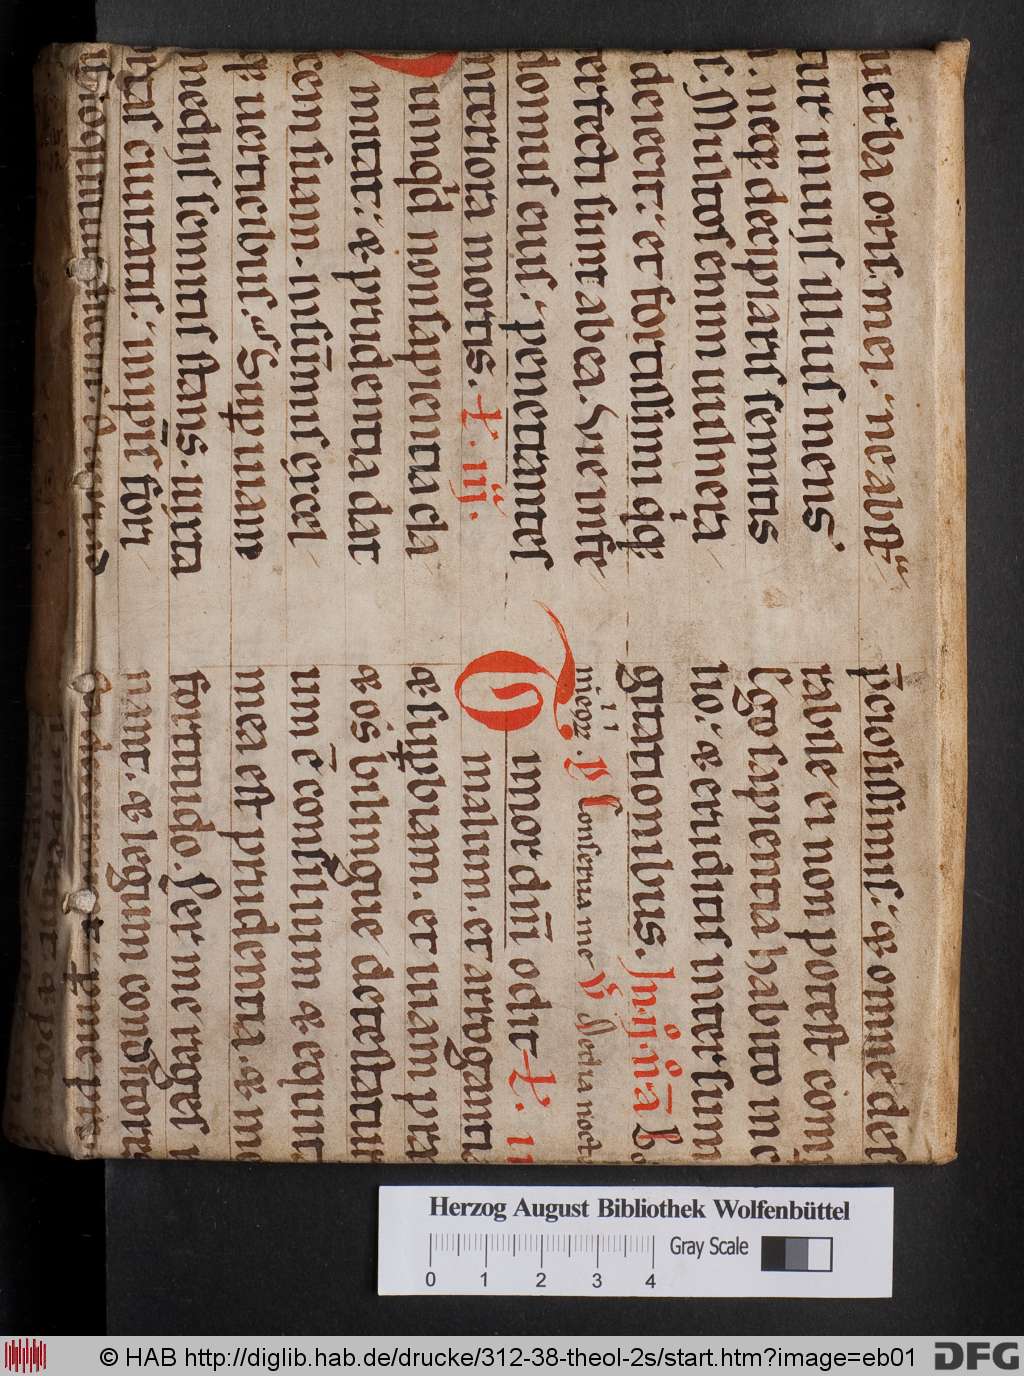 uerba oris mei. ne abst
ur in uiis illius mens
. neq; decipiaris semitis
r. Multos enim uulnera
deiecit. et fortissimi qq;
erfecti sunt ab ea. Vie infe
domus eius. penetrantes
interiora mortis. X. iij.
unqd non sapientia cla
mitat. & prudentia dat
cem suam. in sūmis excel
q; uerticibus. Sup uiam
medijs semitis stans. iuxta
rtas ciuitatis. in ipis fori
pciosissimis. & omne des
rabile ei non potest comp
Ego sapientia habito in c
lio. & eruditis intersum
gitationibus. In. ij. n°. a°.
meoꝝ. Conserua me V Media noct
Timor dn̄i odit X. i
malum. et arrogantia
& supbiam. et uiam pra
& os bilingue detestatur
um ē consilium & equit
mea est prudentia. & me
fortitudo. Per me reges
nant. & legum conditor
Herzog August Bibliothek Wolfenbüttel
Gray Scale
0 1 2 3 4
© HAB http://diglib.hab.de/drucke/312-38-theol-2s/start.htm?image=eb01
DFG